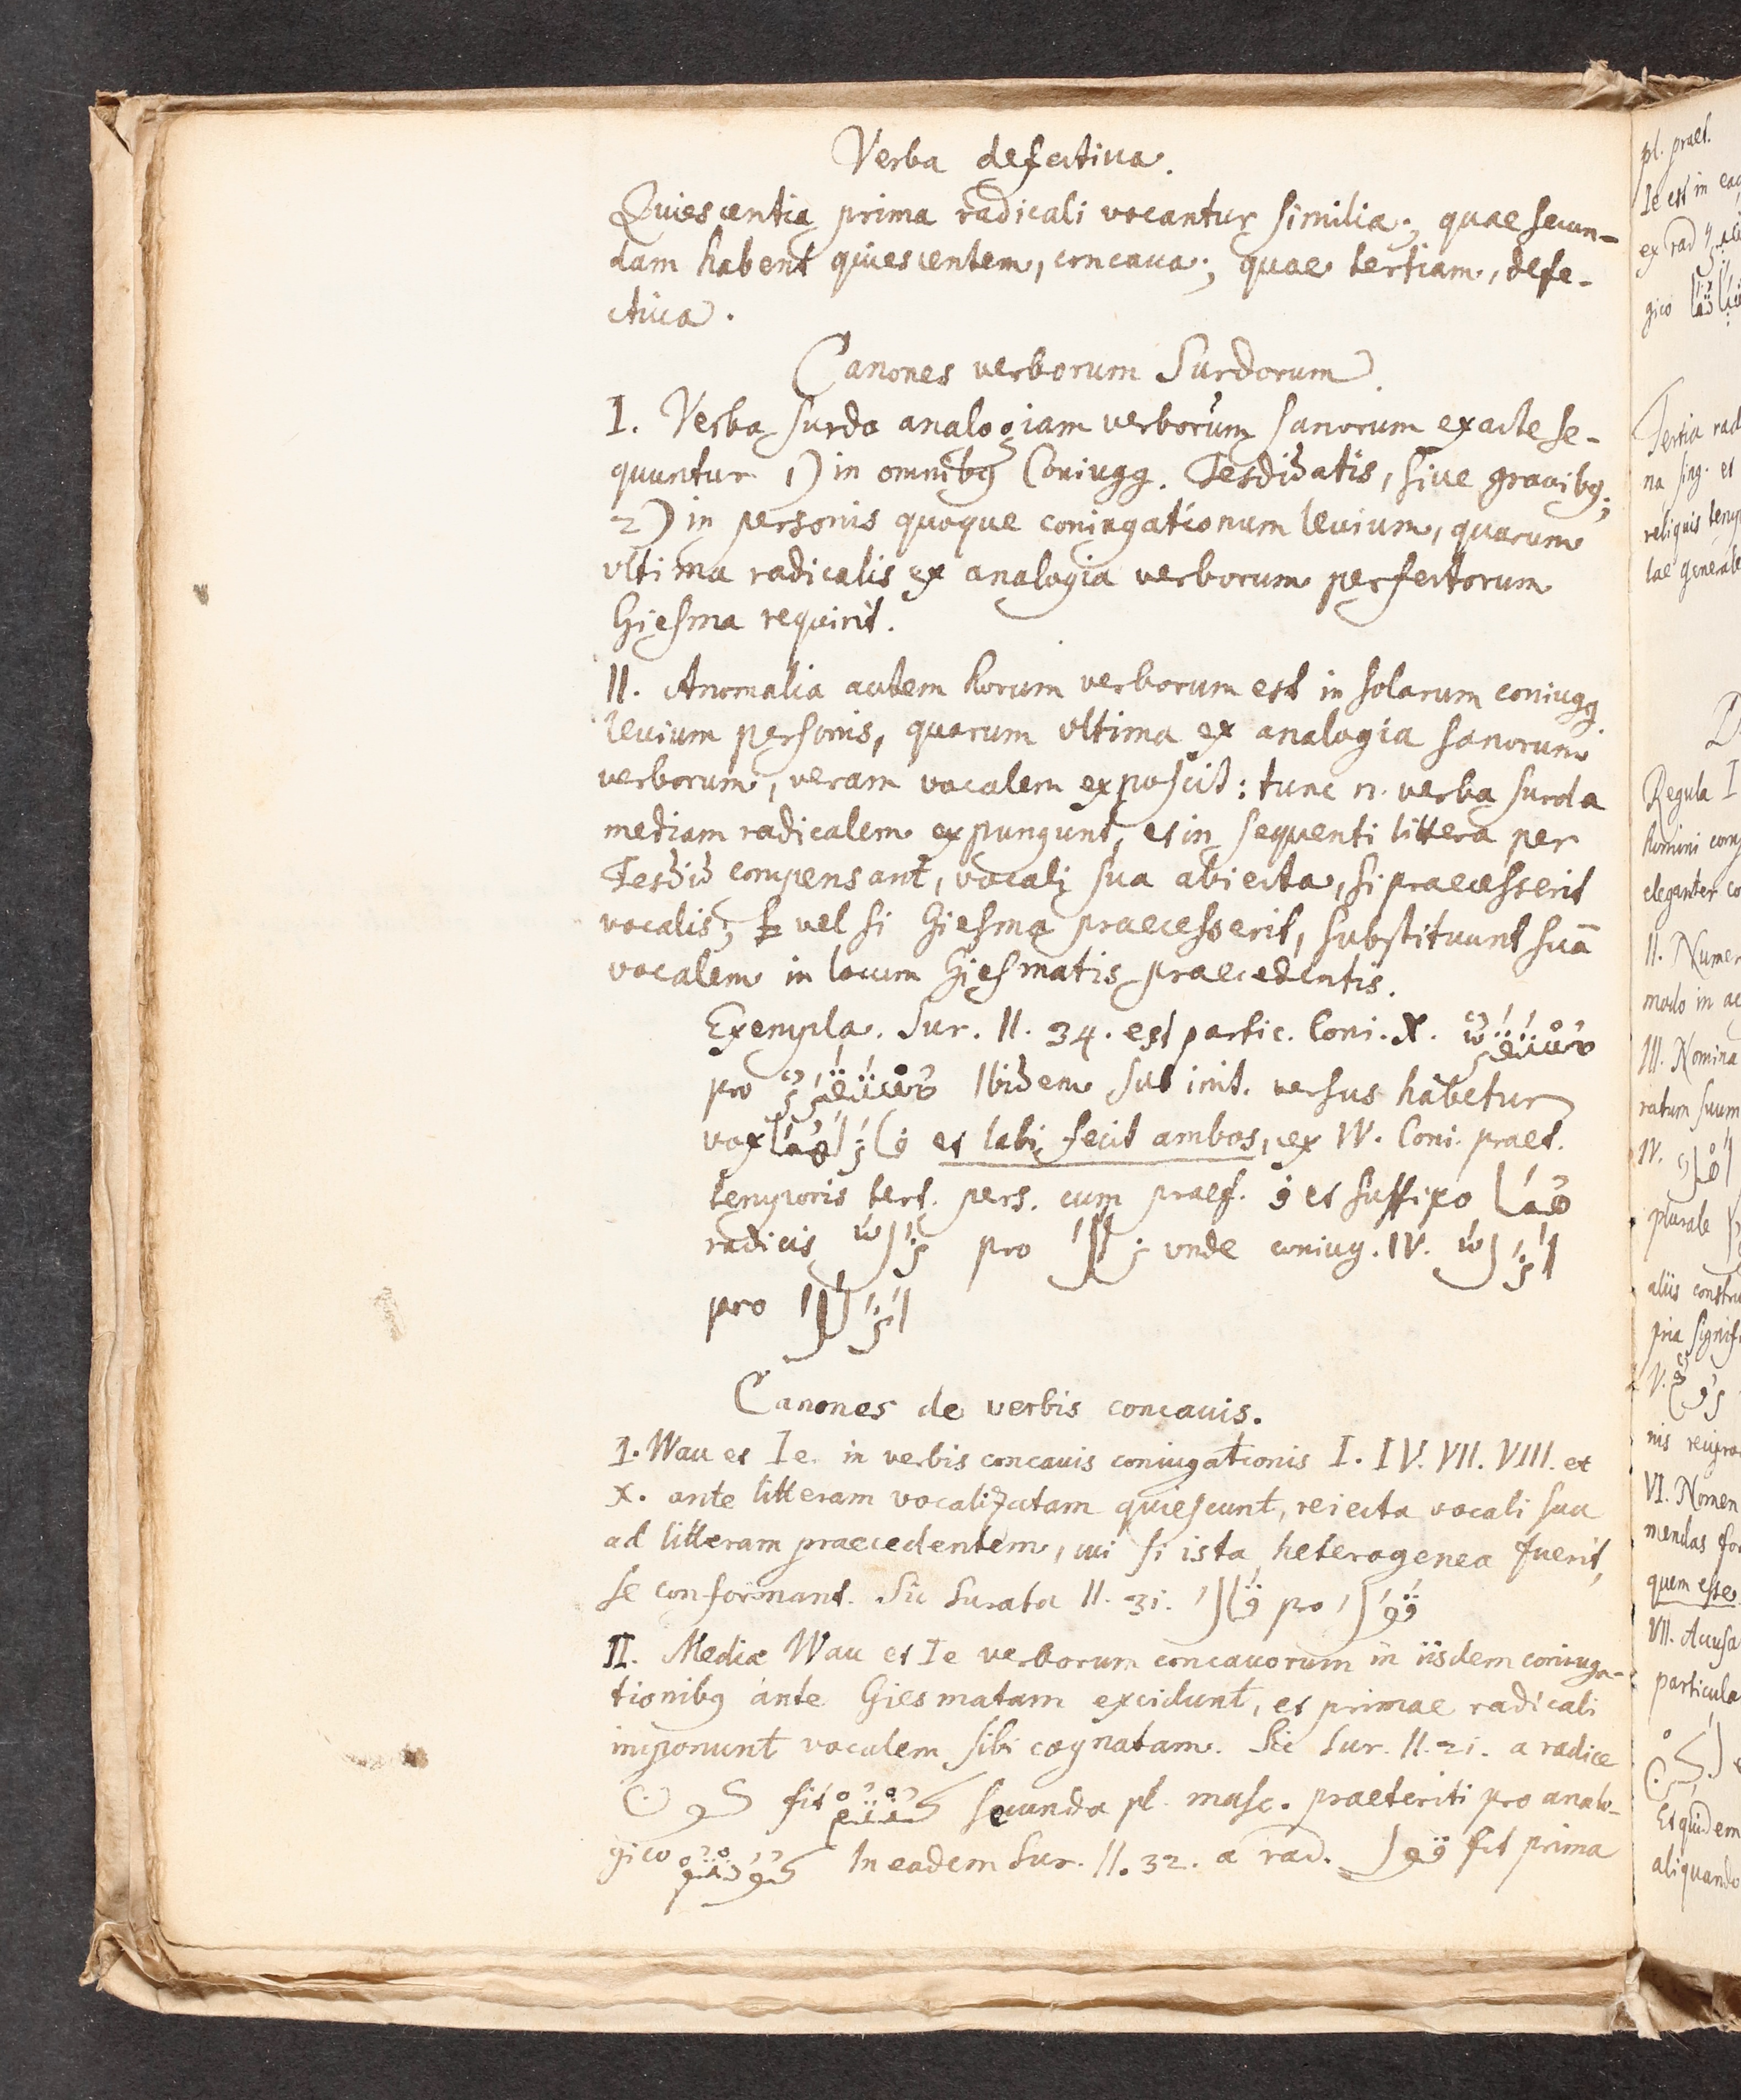 Verba defectiva.
Quiescentia prima radicali vocantur similia; quae secun-
dam habent quiescentem, concaua; quae tertiam, defe-
ctiua.
Canones verborum Surdorum.
I. Verba surda analogiam verborum sanorum exacte se-
quuntur 1) in omnibꝯ Coniugg. Tesdidatis, siue grauibꝯ;
2) in personis quoque coniugationum leuium, quarum
vltima radicalis ex analogia verborum perfectorum
Giesma requirit.
II. Anomalia autem horum verborum est in solarum coniugg
leuium personis, quarum vltima ex analogia sanorum
verborum, veram vocalem exposcit: tunc n. verba surda
mediam radicalem expungunt, et in sequenti littera per
Tesdid compensant, vocali sua abiecta, si praecesserit
vocalis; vel si Giesma praecesserit, substituunt suā
vocalem in locum Giesmatis praecedentis.
Exempla. Sur. II. 34. est partic. Coni. X. مُسْتَقَرٌّ
pro مُسْتَقْرَرٌ Ibidem sub init. versus habetur
vox فَازَلَّهُمَا et labi fecit ambos, ex IV. Coni. praet.
temporis tert. pers. cum praef. ف et suffixo هُمَا
radicis زَلَّ pro زَلَلَ vnde coniug. IV. اَزَلَّ
pro اَزْلَلَ
Canones de verbis concauis.
I. Wau et Ie in verbis concauis coniugationis I. IV. VII. VIII. et
X. ante litteram vocalizatam quiescunt, reiecta vocali sua
ad litteram praecedentem, cui si ista heterogenea fuerit,
se conformant. Sic Surata II. 31. قَالَ pro قَوَلَ
II. Mediæ Wau et Ie verborum concauorum in iisdem coniuga-
tionibꝯ ante Giesmatam excidunt, et primae radicali
imponunt vocalem sibi cognatam. Sic Sur. II. 21. a radice
كون fit كُنْتُمْ secunda pl. masc. praeteriti pro analo-
gico كَوُنْتُمْ In eadem Sur. II. 32. a rad. قول fit prima
pl. praet.
Ie est in
ex rad
gico
Tertia rad
na sing. et
reliquis temp
lae generale
Regula I
homini
eleganter co
II. Numer
modo in
III. Nomina
ratum suum
IV.
plurale
aliis constru
pria signifi
V.
VI. Nomen
mendas
quem esse
VII. Accusa
particula
Et quidem
aliquando